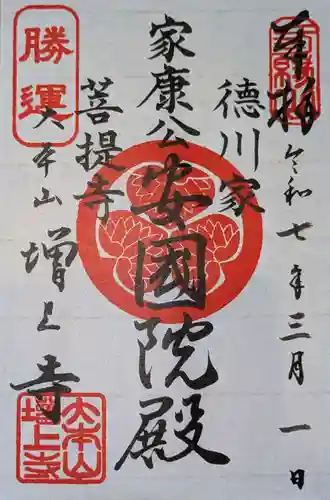 奉拝
令和七年三月一日
徳川家
家康公安國院殿
菩提寺
勝運
大本山増上寺
大本山増上寺